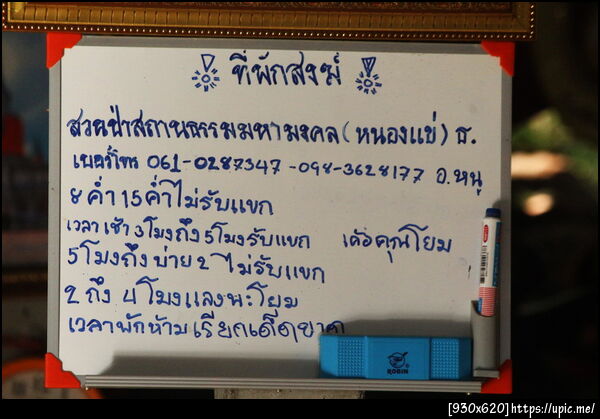 ที่พักสงฆ์
สวนป่าสถานธรรมมหามงคล (หนองแข่) ธ.
เบอร์โทร 061-0287347 -098-3628177 อ.หนู
8 ค่ำ 15 ค่ำไม่รับแขก
เวลาเช้า 3 โมงถึง 5 โมงรับแขก เด้อคุณโยม
5 โมงถึงบ่าย 2 ไม่รับแขก
2 ถึง 4 โมงแลงนะโยม
เวลาพักห้ามเรียกเด็ดขาด
ROBIN
[930x620]https://upic.me/